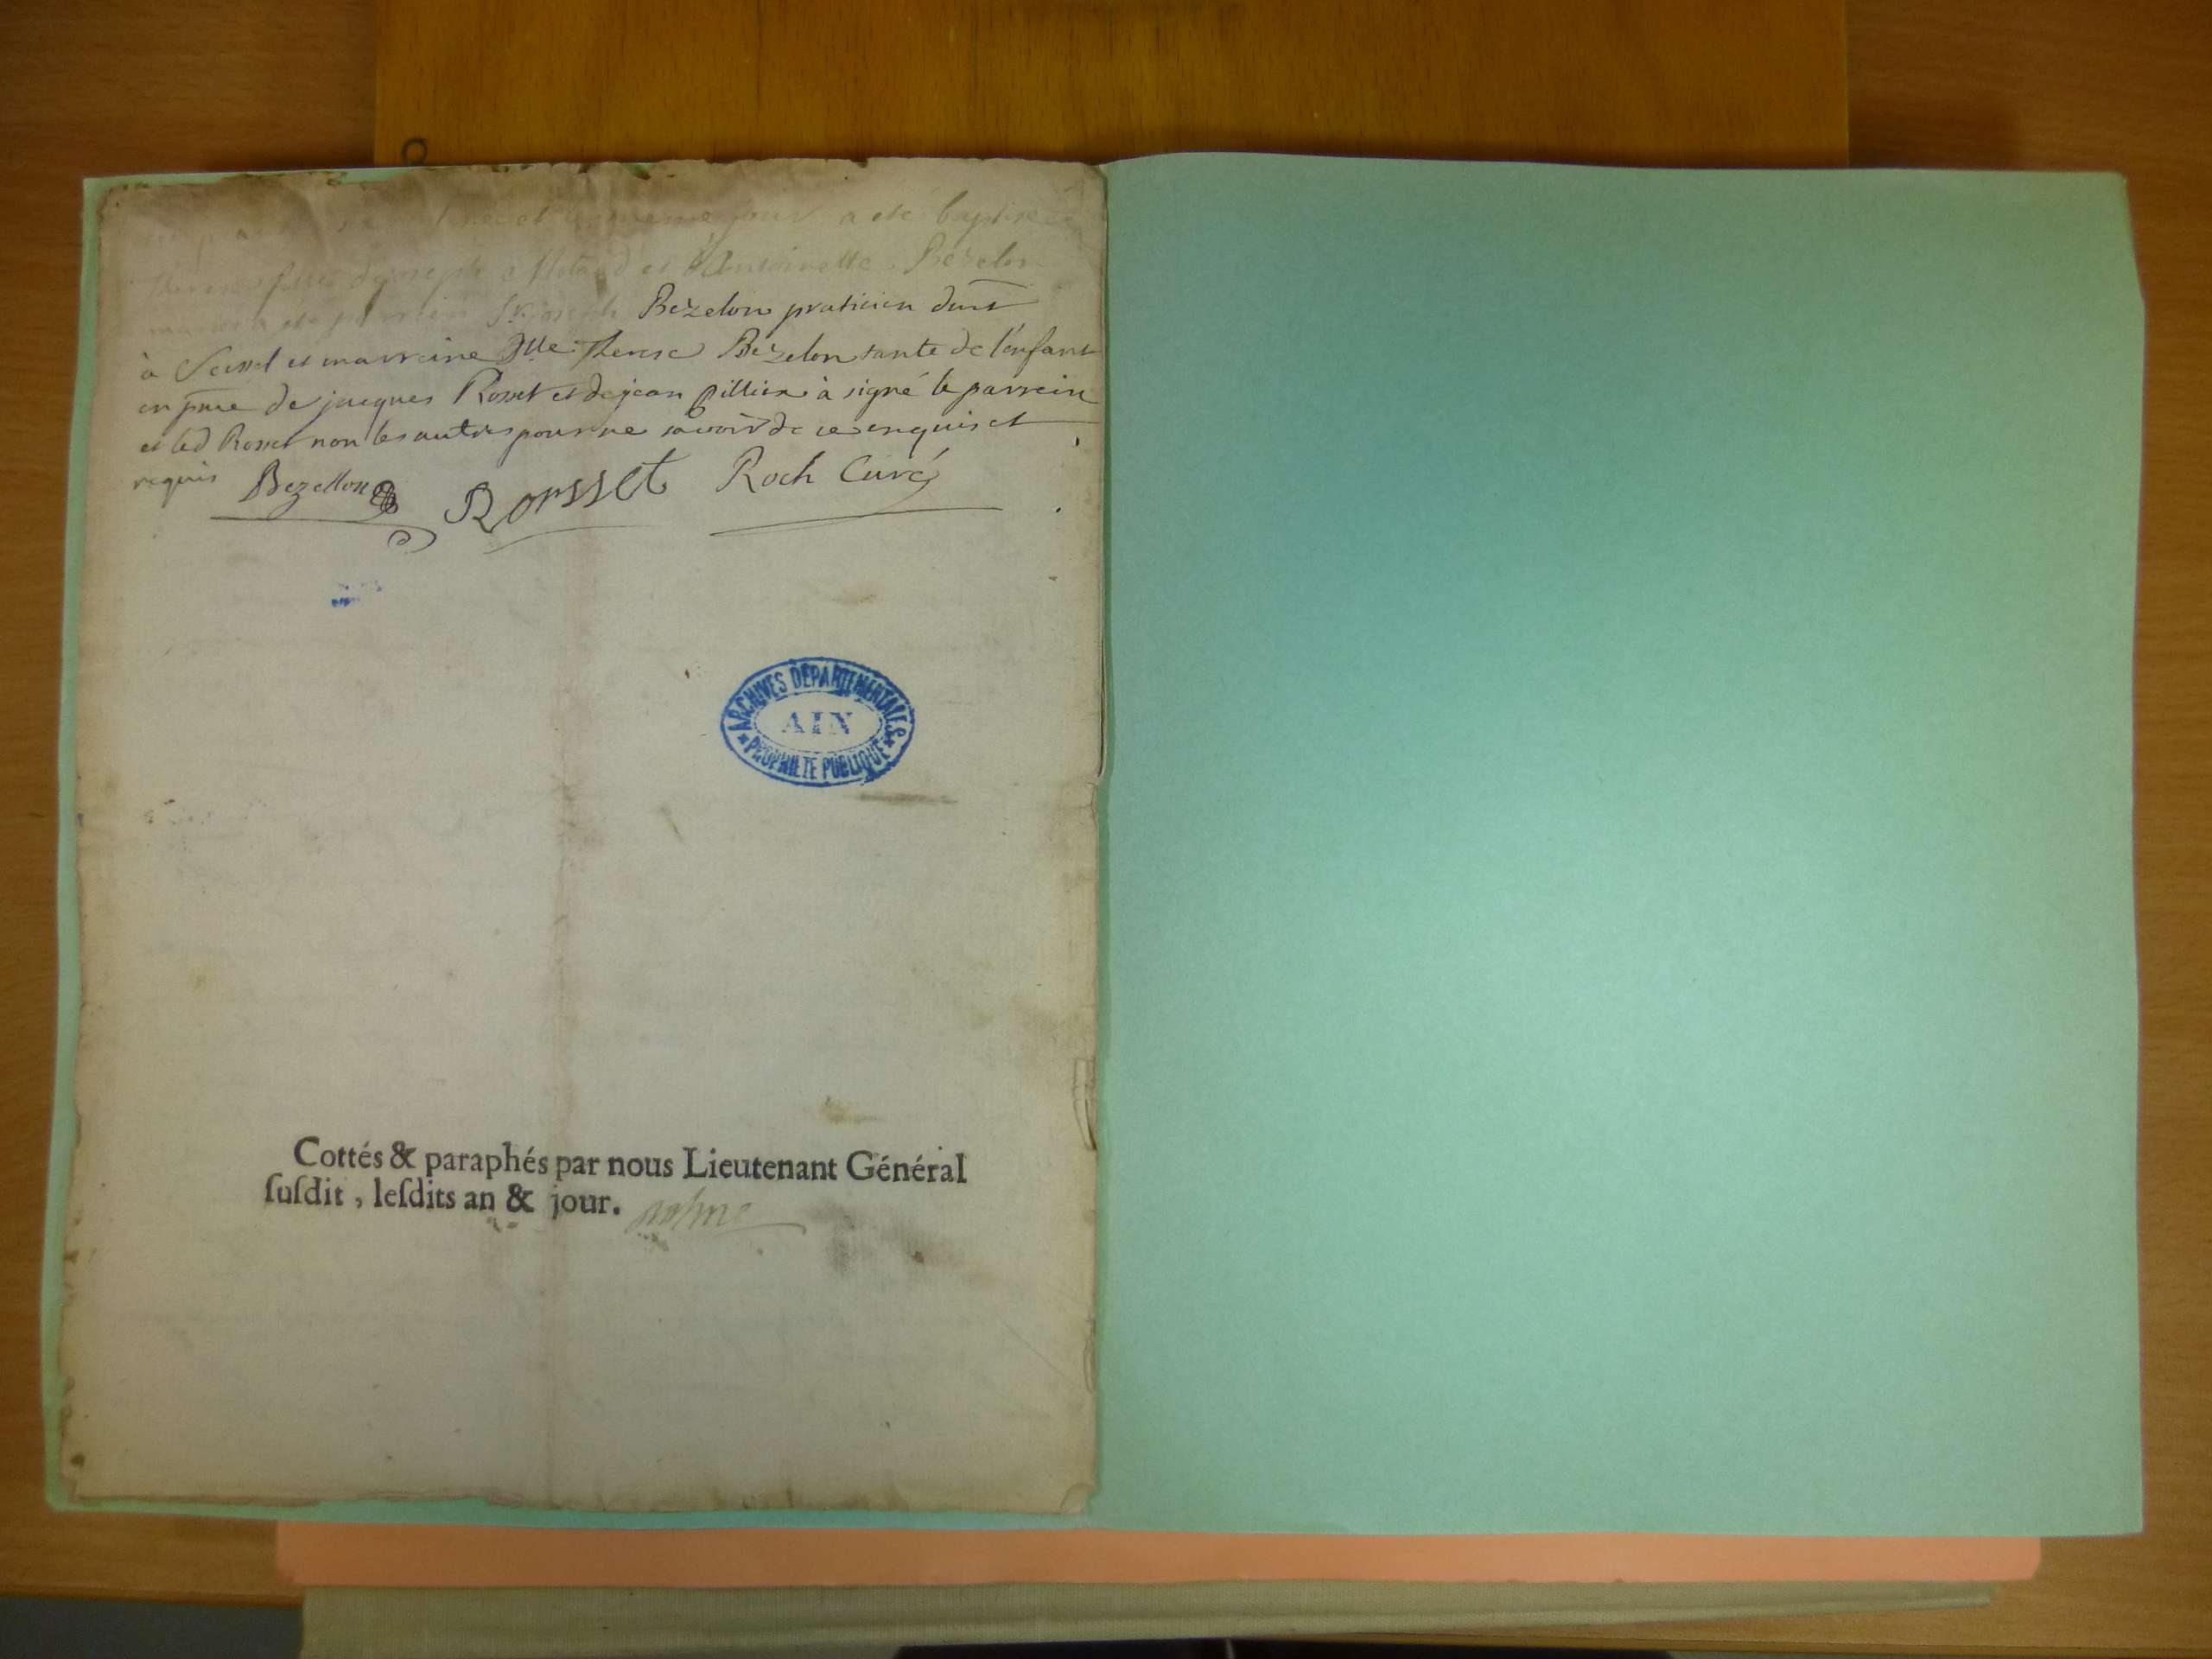 et le meme jour a eté baptisé
fille de joseph et d'Antoinette Bezelon
a eté parrain Sr joseph Bezelon praticien dmt
à Seissel et marreine Dlle Therese Bezelon tante de l'enfant
en pnce de jacques Rosset et de jean pillion à signé le parrein
et led Rosset non les autres pour ne savoir de ce enquis et
requis Bezellon Rorsset Roch Curé
ARCHIVES DEPARTEMENTALES
AIN
PROPRIETE PUBLIQUE
Cottés & paraphés par nous Lieutenant Général
ſuſdit, leſdits an & jour.